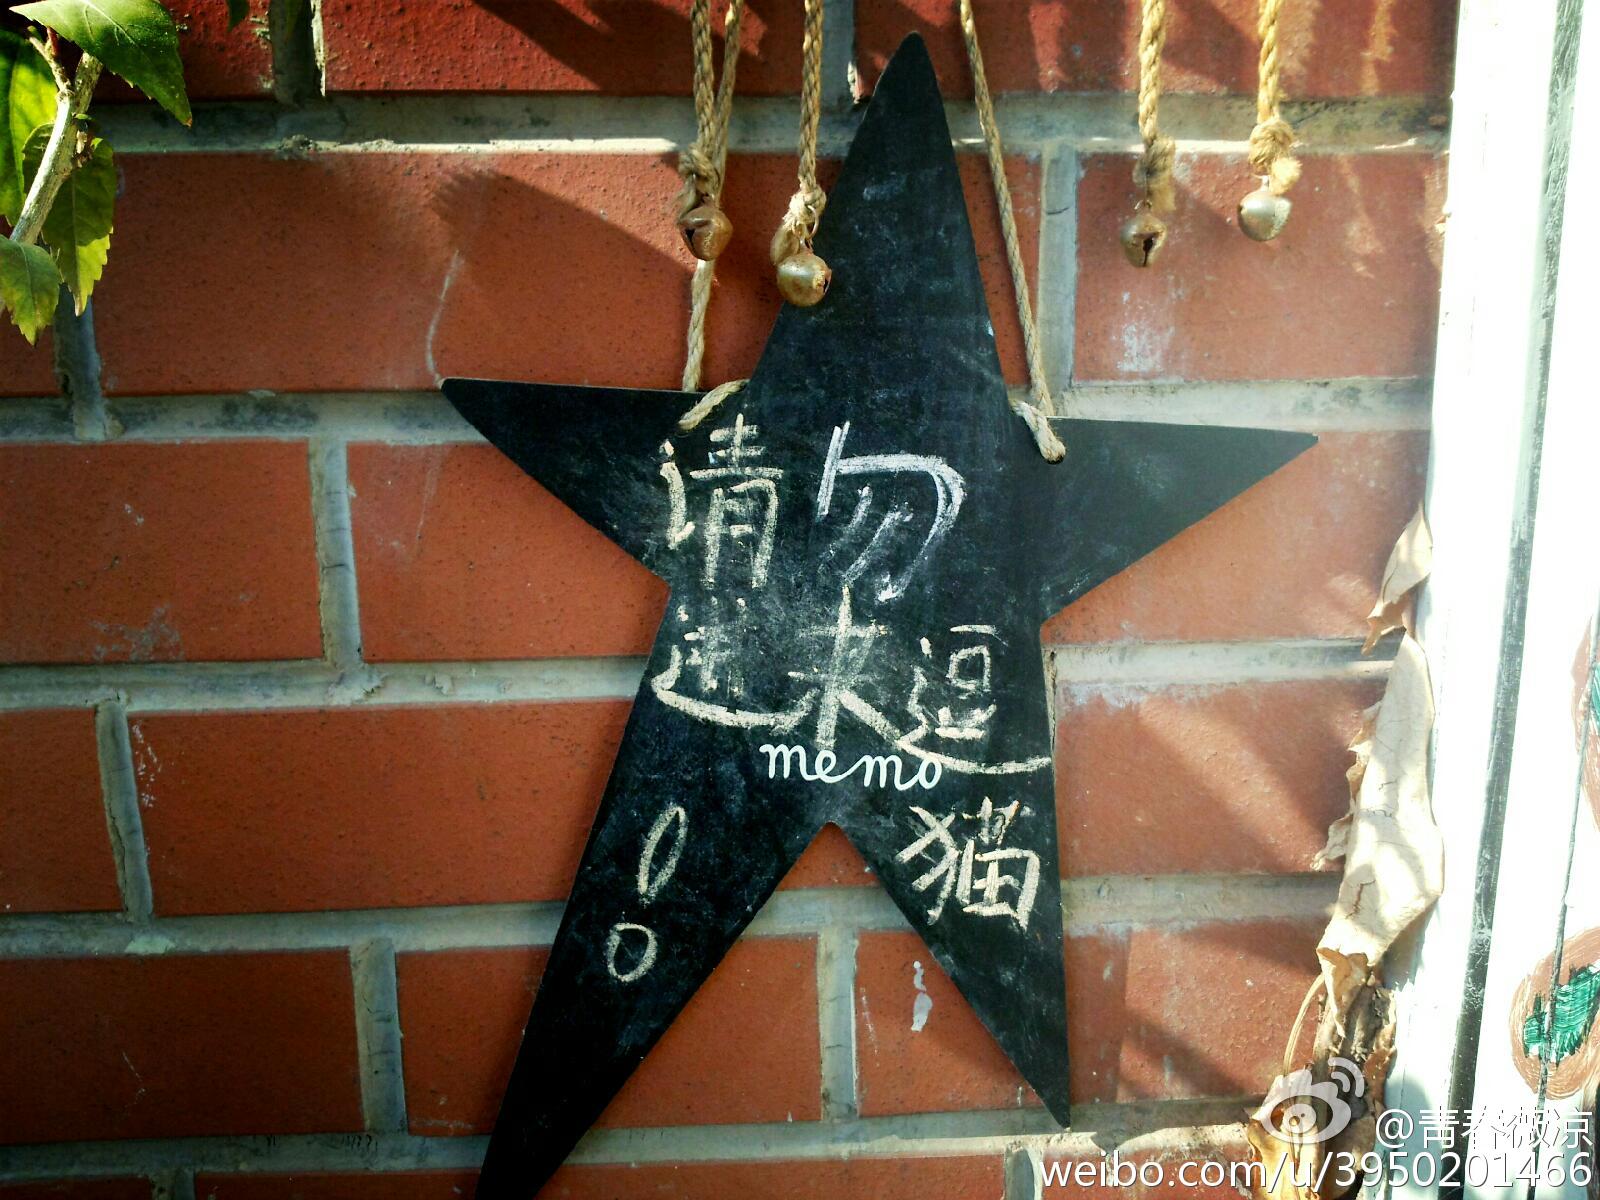 请勿
进来逗
memo
猫
！
@青春微凉
weibo.com/u/3950201466